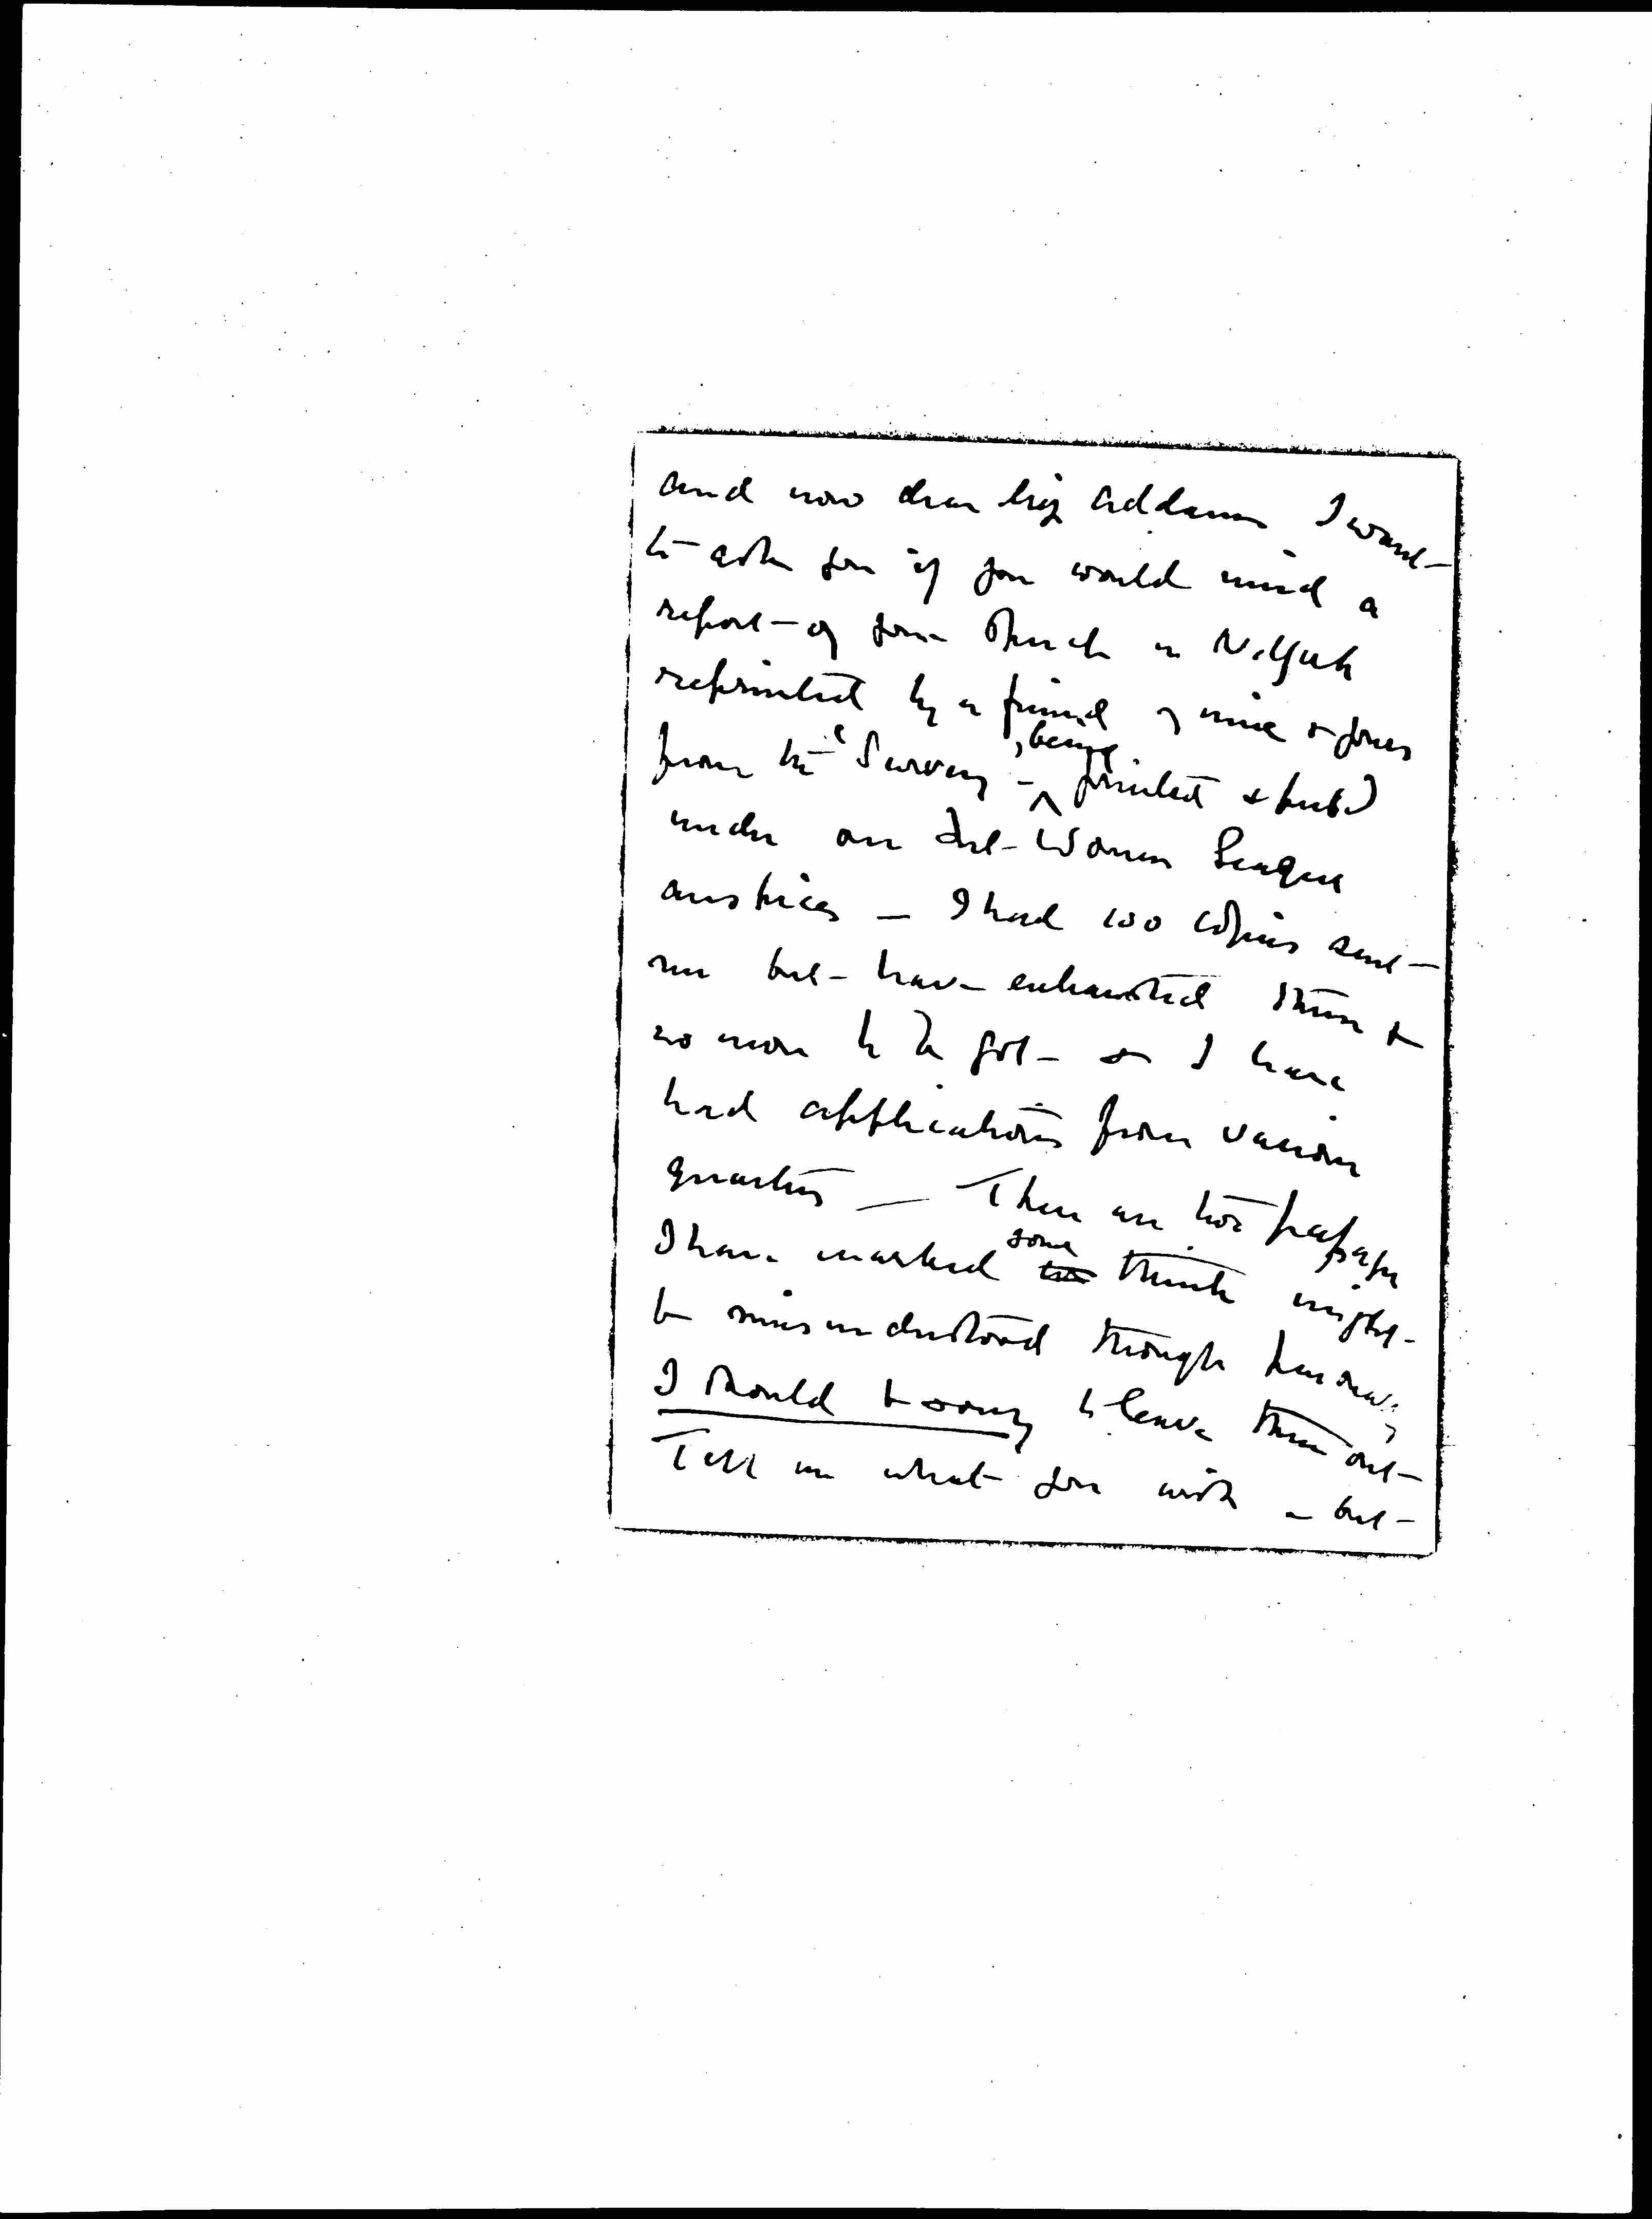 and now dear Miss Addams I want
to ask you if you would mind a
report of your speech in N. York
reprinted by a friend of mine & yours
from the 'Survey' – being printed & pub.d
under our Int Women League
auspices – I had 100 copies sent
me but have exhausted them &
no more to be got – & I have
had applications from various
quarters – There are two passages
I have marked some think might
be misunderstood though personally
I should be sorry to leave them out
Tell me what you wish – but